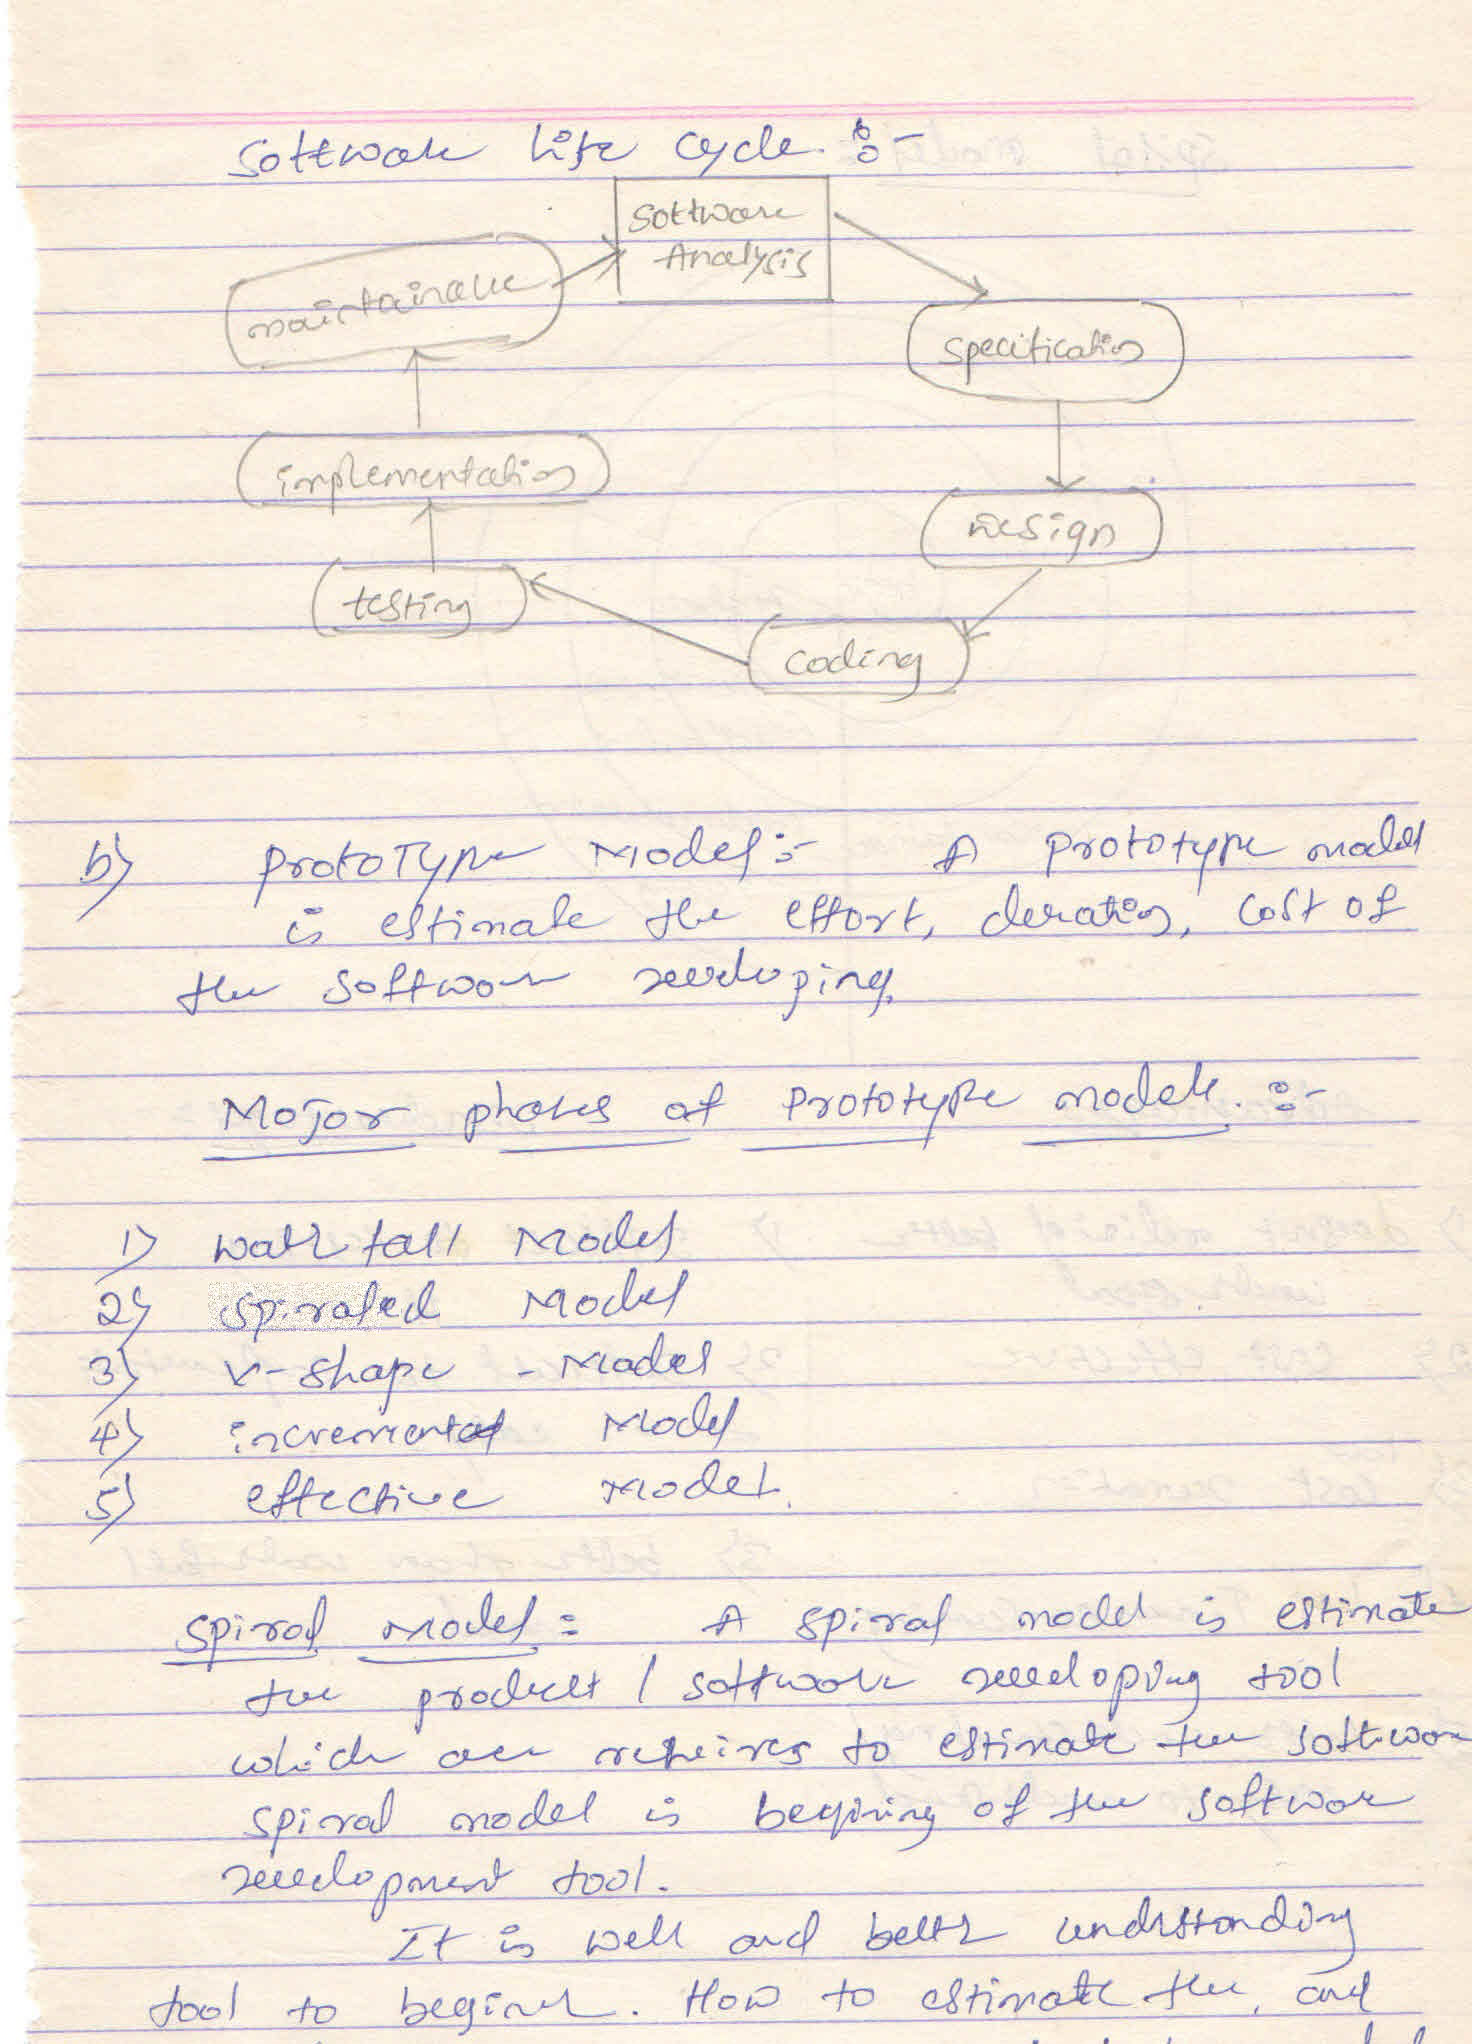 Software Life Cycle :-
Software
Analysis
maintainance
specification
implementation
Design
testing
coding
b) ProtoType Model :- A Prototype model
is estimate the effort, duration, cost of
the software developing.
Major phases of Prototype models. :-
1) water fall Model
2) spiraled Model
3) V-shape - Model
4) incremental Model
5) effective Model.
Spiral Model : A spiral model is estimate
the product / software developing tool
which are to estimate the software
spiral model is of the software
development tool.
It is well and better understanding
tool to beginer. How to estimate the, and